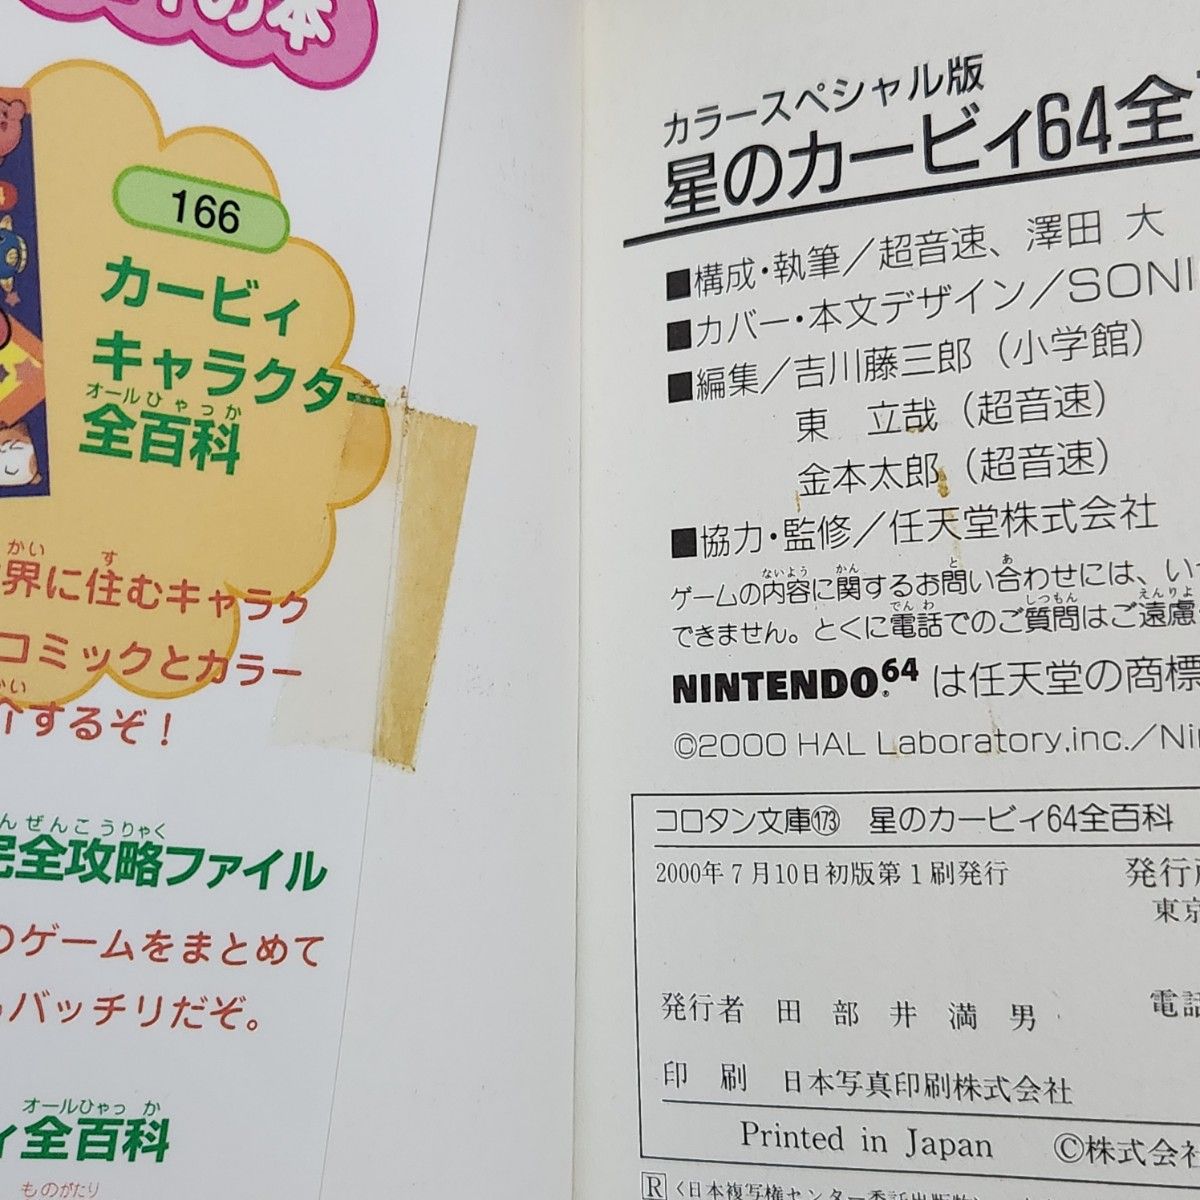 の本
166
カービィ
キャラクター
オールひゃっか
全百科
かい す
界に住むキャラク
コミックとカラー
介するぞ！
んぜんこうりゃく
完全攻略ファイル
のゲームをまとめて
バッチリだぞ。
オールひゃっか
ィ全百科
ものがたり
カラースペシャル版
星のカービィ64全
■構成・執筆／超音速、澤田 大
■カバー・本文デザイン／SONI
■編集／吉川藤三郎（小学館）
東 立哉（超音速）
金本太郎（超音速）
■協力・監修／任天堂株式会社
ないよう かん と あ
ゲームの内容に関するお問い合わせには、い
でんわ しつもん えんりよ
できません。とくに電話でのご質問はご遠慮
NINTENDO64 は任天堂の商標
©2000 HAL Laboratory,inc./Nin
コロタン文庫173 星のカービィ64全百科
2000年7月10日初版第1刷発行
発行
東京
発行者 田部井満男
電話
印刷 日本写真印刷株式会社
Printed in Japan ©株式会社
R〈日本複写権センター委託出版物〉